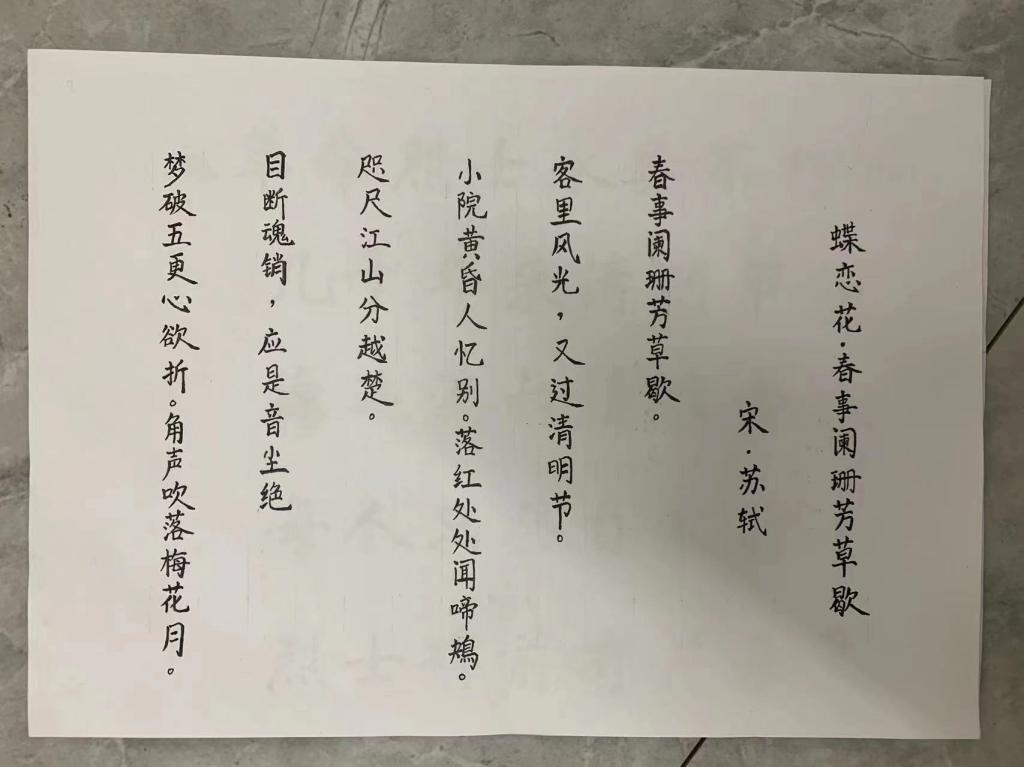 蝶恋花·春事阑珊芳草歇
宋·苏轼
春事阑珊芳草歇。
客里风光，又过清明节。
小院黄昏人忆别。落红处处闻啼鴂。
咫尺江山分越楚。
目断魂销，应是音尘绝
梦破五更心欲折。角声吹落梅花月。